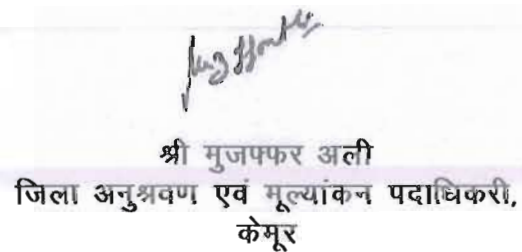 श्री मुजफ्फर अली
जिला अनुश्रवण एवं मूल्यांकन पदाधिकरी,
केमूर